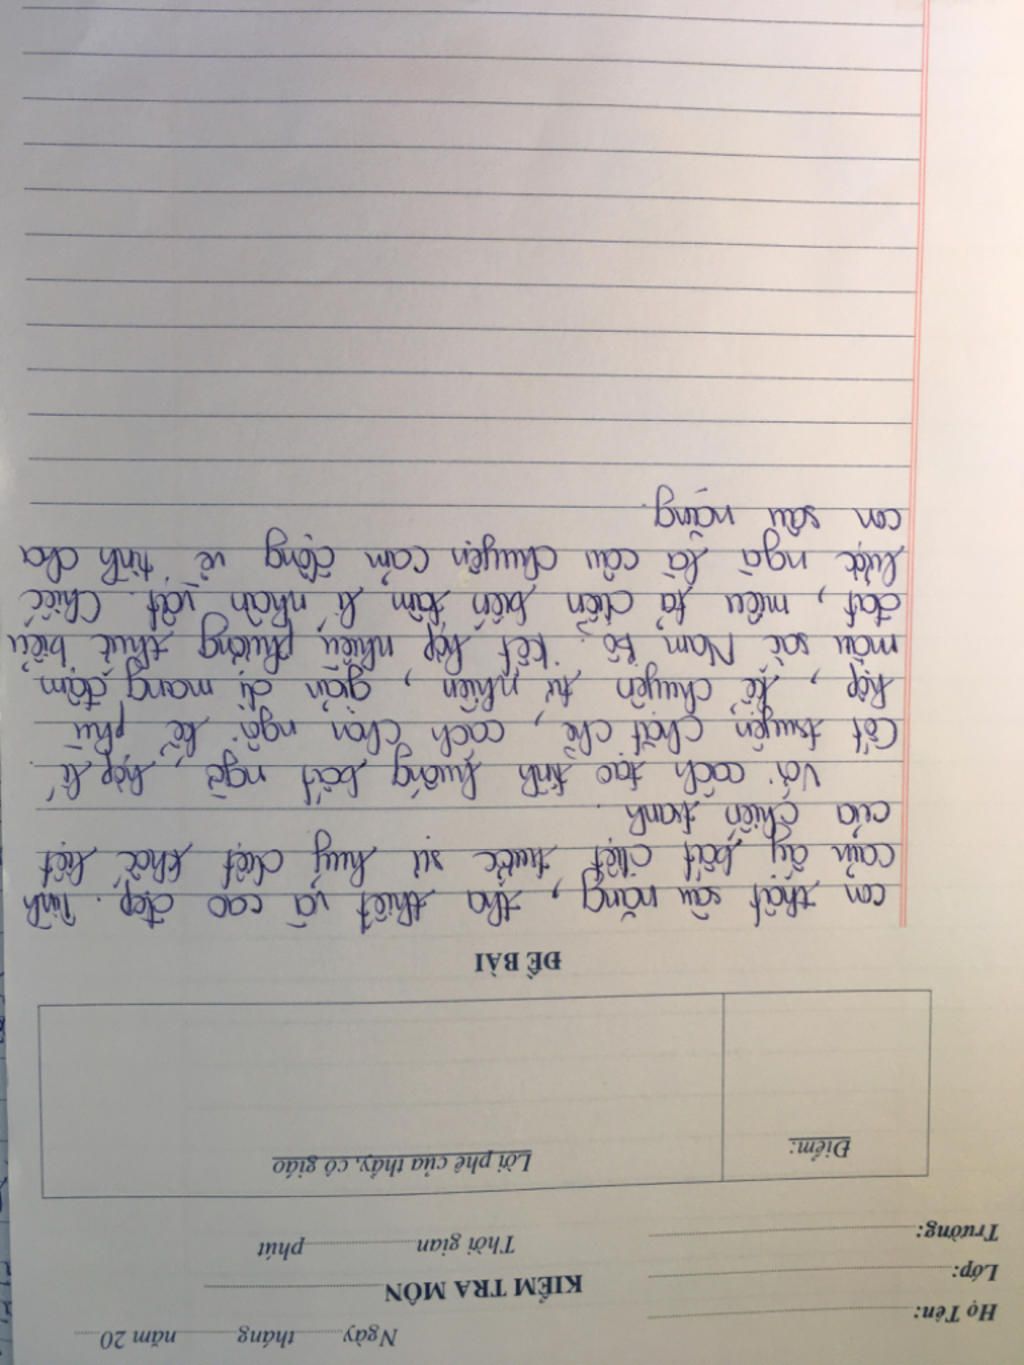 Ngày........ tháng........ năm 20......
Họ Tên:
KIỂM TRA MÔN
Lớp:
Thời gian ........ phút
Trường:
Điểm:
Lời phê của thầy, cô giáo
ĐỀ BÀI
con thật sâu nặng, tha thiết và cao đẹp. Tình
cảm ấy bất diệt trước sự huỷ diệt khốc liệt
của chiến tranh.
Với cách tạo tình huống bất ngờ, hợp lí.
Cốt truyện chặt chẽ, cách chọn ngôi kể phù
hợp, kể chuyện tự nhiên, giản dị mang đậm
màu sắc Nam Bộ. Kết hợp nhiều phương thức biểu
đạt, miêu tả diễn biến tâm lí nhân vật. Chiếc
lược ngà là câu chuyện cảm động về tình cha
con sâu nặng.